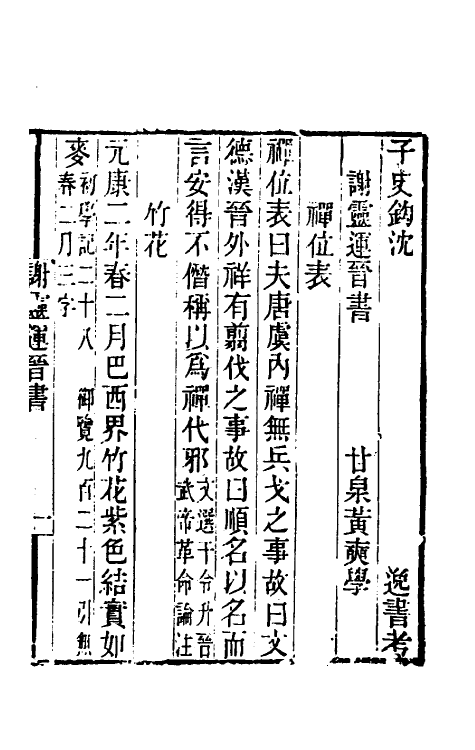 子史鈎沈　逸書考
謝靈運晉書　甘泉黃奭學
禪位表
禪位表曰夫唐虞內禪無兵戈之事故曰文
德漢晉外禪有翦伐之事故曰順名以名而
言安得不僭稱以爲禪代邪文選干令升晉
武帝革命論注
竹花
元康二年春二月巴西界竹花紫色結實如
麥初學記二十八　御覽九百二十一引無
春二月三字
謝靈運晉書
一